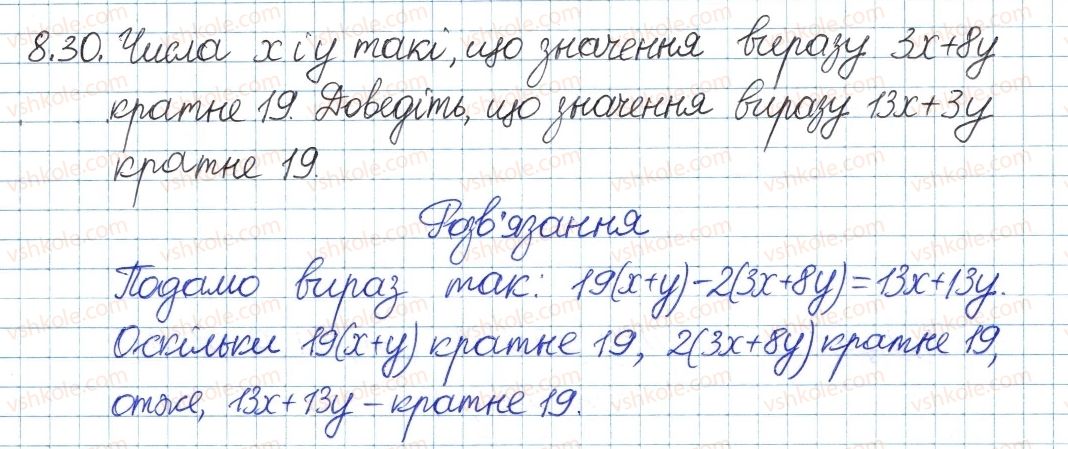 8.30. Числа x і y такі, що значення виразу 3x+8y
кратне 19. Доведіть, що значення виразу 13x+3y
кратне 19.
Розв'язання
Подамо вираз так: 19(x+y)-2(3x+8y)=13x+13y.
Оскільки 19(x+y) кратне 19, 2(3x+8y) кратне 19,
отже, 13x+13y - кратне 19.